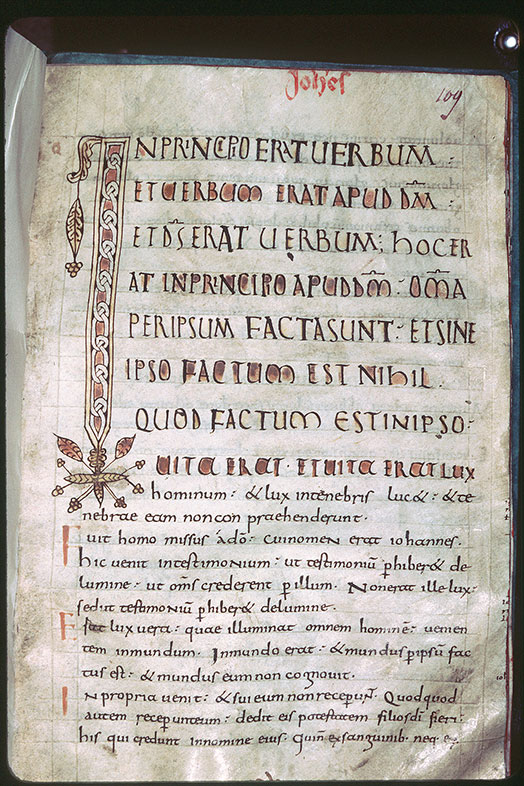 Johes
109
INPRINCIPIO ERAT UERBUM
ET UERBUM ERAT APUD DM̅
ET DS̅ ERAT UERBUM; HOC ER
AT INPRINCIPIO APUD DM̅ OM̅A
PER IPSUM FACTA SUNT ET SINE
IPSO FACTUM EST NIHIL
QUOD FACTUM EST IN IPSO
UITA ERAT · ET UITA ERAT LUX
hominum & lux intenebris luc& & te
nebrae eam non con praehenderunt.
Fuit homo missus ado̅ cuinomen erat iohannes.
hic venit intestimonium ut testimoniu̅ p̲hiber& de
lumine ut om̅s crederent p̲ illum. Nonerat ille lux
sed ut testimoniu̅ p̲hiber& delumine.
Erat lux vera quae illuminat omnem homine̅ venien
tem inmundum. Inmundo erat & mundus p̲ipsu̅ fac
tus est & mundus eum non cognovit.
In propria venit & sui eum non receper̅ Quodquod
autem receperunt eum dedit eis potestatem filios di̅ fieri
his qui credunt innomine eius quin̅ exsanguinib. neq. e